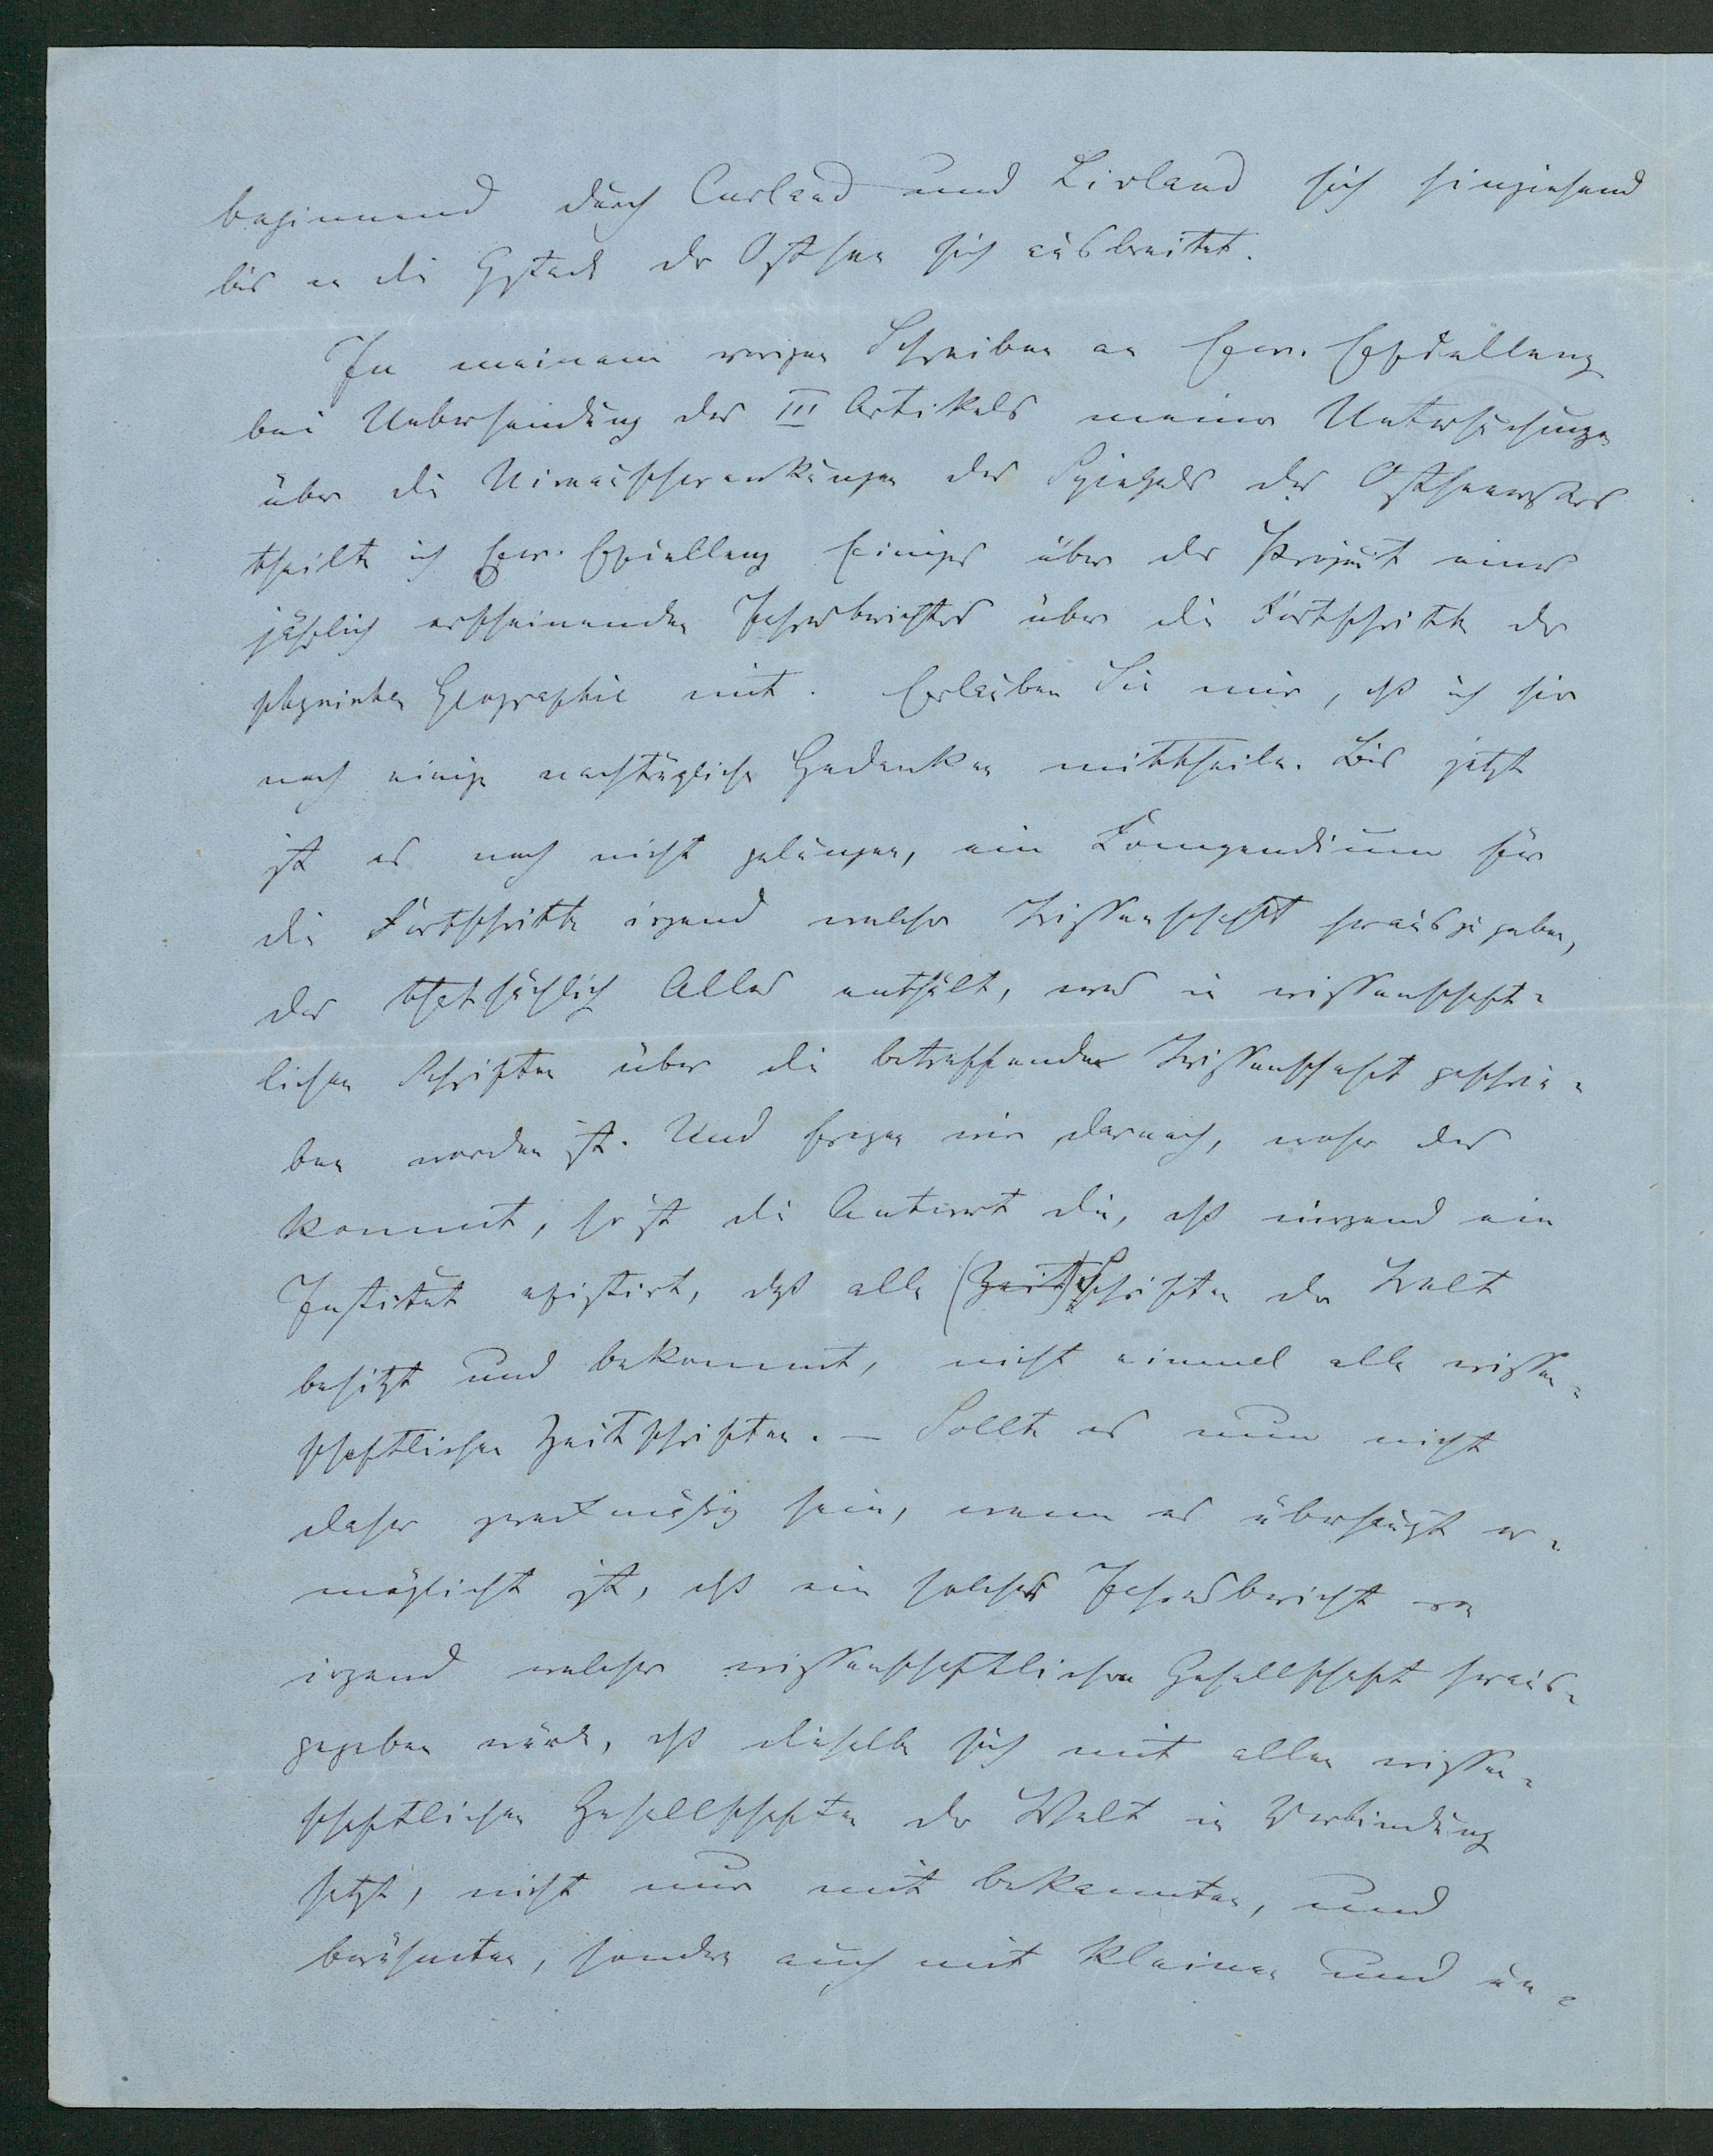 beginnend durch Curland und Livland sich hinziehend
bis an die Gestade der Ostsee sich ausbreitet.
In meinem vorigen Schreiben an Eure Excellenz
bei Uebersendung des III Artikels meiner Untersuchungen
über die Niveauschwankungen des Spiegels des Ostseewassers
theilte ich Eure Excellenz Einiges über das Project eines
jährlich erscheinenden Jahresberichtes über die Fortschritte der
physischen Geographie mit. Erlauben Sie mir, daß ich hier
noch einige nachträgliche Gedanken mittheile. Bis jetzt
ist es noch nicht gelungen, ein Compendium für
die Fortschritte irgend welcher Wissenschaft herauszugeben,
das thatsächlich Alles enthält, was in wissenschaft-
lichen Schriften über die betreffende Wissenschaft geschrie-
ben worden ist. Und fragen wir darnach, woher das
kommt, so ist die Antwort die, daß nirgend ein
Institut existirt, das alle (Zeit) Schriften der Welt
besitzt und bekommt, nicht einmal alle wissen-
schaftlichen Zeitschriften. – Sollte es nun nicht
daher zweckmäßig sein, wenn es überhaupt er-
möglicht ist, daß ein solcher Jahresbericht von
irgend welcher wissenschaftlichen Gesellschaft heraus-
gegeben würde, daß dieselbe sich mit allen wissen-
schaftlichen Gesellschaften der Welt in Verbindung
setzt, nicht nur mit bekannten, und
berühmten, sondern auch mit kleinen und un-